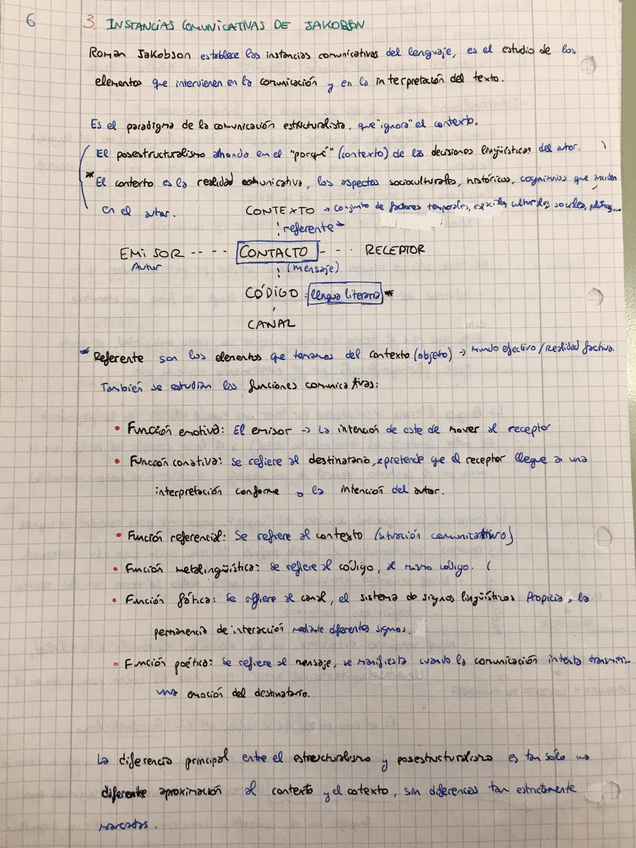 6
3. INSTANCIAS COMUNICATIVAS DE JAKOBSON
Roman Jakobson establece las instancias comunicativas del lenguaje, es el estudio de los
elementos que intervienen en la comunicación y en la interpretación del texto.
Es el paradigma de la comunicación estructuralista, que "ignora" el contexto.
El posestructuralismo ahonda en el "porqué" (contexto) de las decisiones lingüísticas del autor.
* El contexto es la realidad comunicativa, los aspectos socioculturales, históricos, cognitivos que inciden
en el autor.
CONTEXTO → conjunto de factores temporales, culturales, sociales,
referente *
EMISOR ---- CONTACTO --- RECEPTOR
Autor
(mensaje)
CÓDIGO: lengua literaria *
CANAL
* Referente son los elementos que tomamos del contexto (objeto) → mundo efectivo / Realidad factiva.
También se estudian las funciones comunicativas:
• Función emotiva: El emisor → La intención de este de mover al receptor
• Función conativa: se refiere al destinatario, pretende que el receptor llegue a una
interpretación conforme a la intención del autor.
• Función referencial: Se refiere al contexto (situación comunicativa)
• Función metalingüística: se refiere al código, al mismo código. (
• Función fática: Se refiere al canal, el sistema de signos lingüísticos. Propicia la
permanencia de interacción mediante diferentes signos.
• Función poética: se refiere al mensaje, se manifiesta cuando la comunicación intenta transmitir
una emoción del destinatario.
La diferencia principal entre el estructuralismo y posestructuralismo es tan sólo una
diferente aproximación al contexto y el cotexto, sin diferencias tan estrictamente
marcadas.